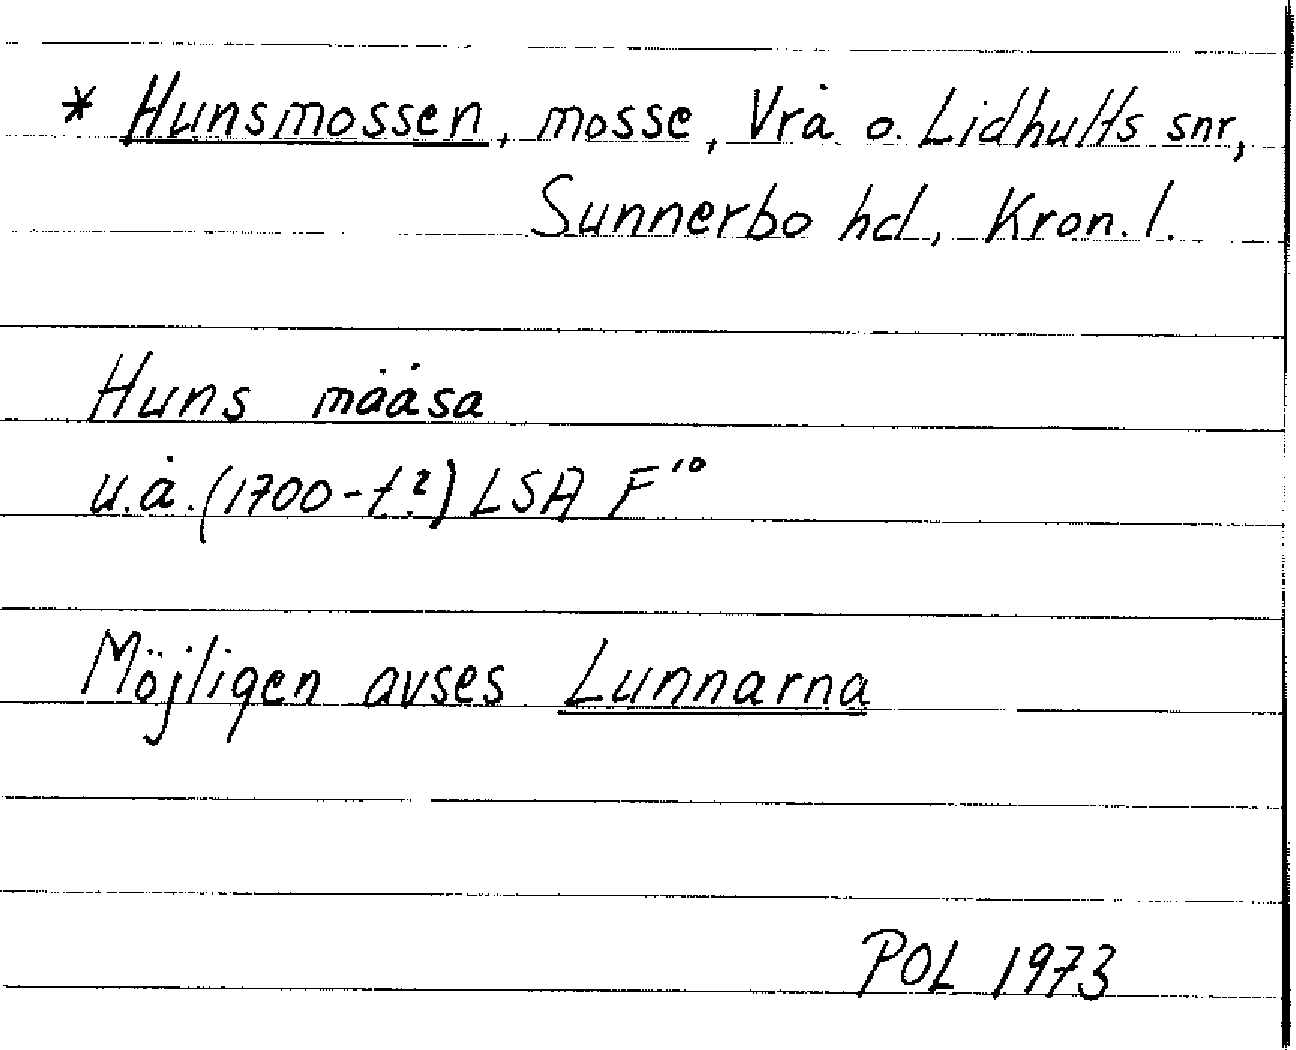 * Hunsmossen, mosse, Vrå o. Lidhults snr,
Sunnerbo hd, Kron. l.
Huns mååsa
u.å. (1700-t.?) LSA F¹⁰
Möjligen avses Lunnarna
POL 1973